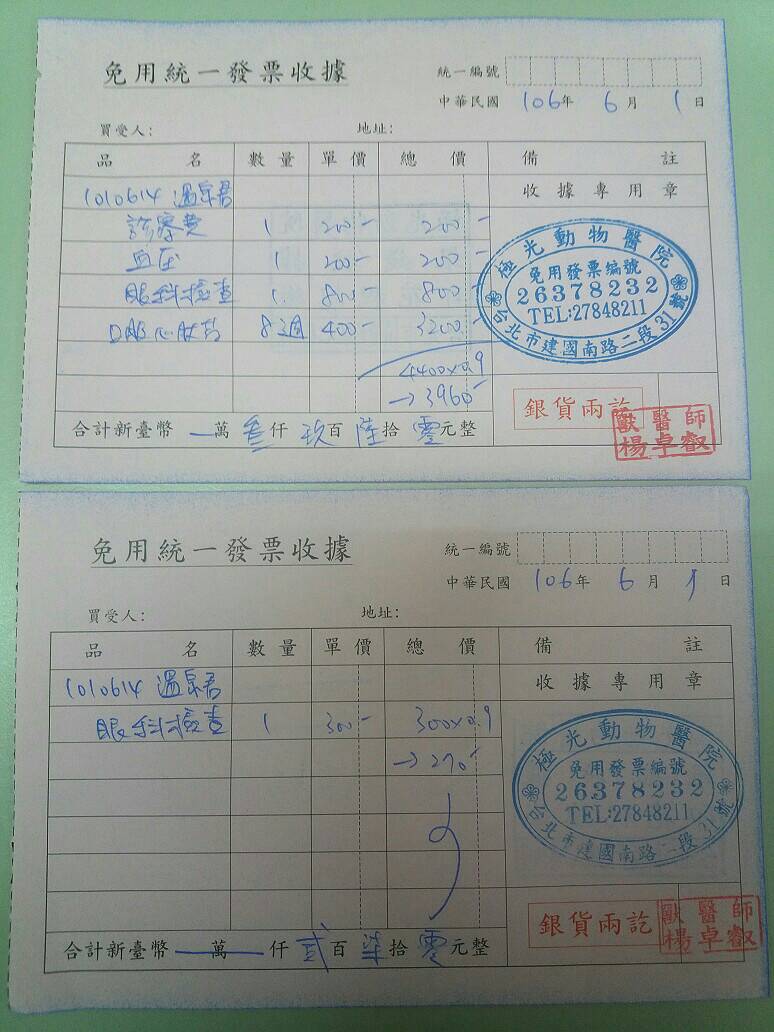 免用統一發票收據
統一編號
中華民國 106年 6月 1日
買受人: 地址:
品名 數量 單價 總價 備註
1010614 溫泉君 收據專用章
診療費 1 200- 200-
血压 1 200- 200-
眼科檢查 1. 800- 800-
口服心 8週 400- 3200-
4400x0.9
→3960-
極光動物醫院
免用發票編號
26378232
TEL:27848211
台北市建國南路二段31號
銀貨兩訖
獸醫師
楊卓叡
合計新臺幣 一萬 叁仟 玖百 陸拾 零元整
免用統一發票收據
統一編號
中華民國 106年 6月 9日
買受人: 地址:
品名 數量 單價 總價 備註
1010614 溫泉君 收據專用章
眼科檢查 1 300- 300x0.9
→270-
極光動物醫院
免用發票編號
26378232
TEL:27848211
台北市建國南路二段31號
銀貨兩訖
獸醫師
楊卓叡
合計新臺幣 一萬 一仟 貳百 柒拾 零元整